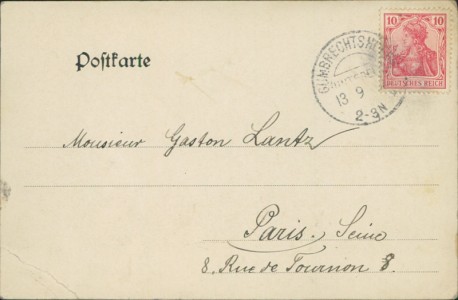 Postkarte
10 10
DEUTSCHES REICH
13 9
2-3N
Monsieur Gaston Lantz
Paris. Seine
8. Rue de Tournon 8.